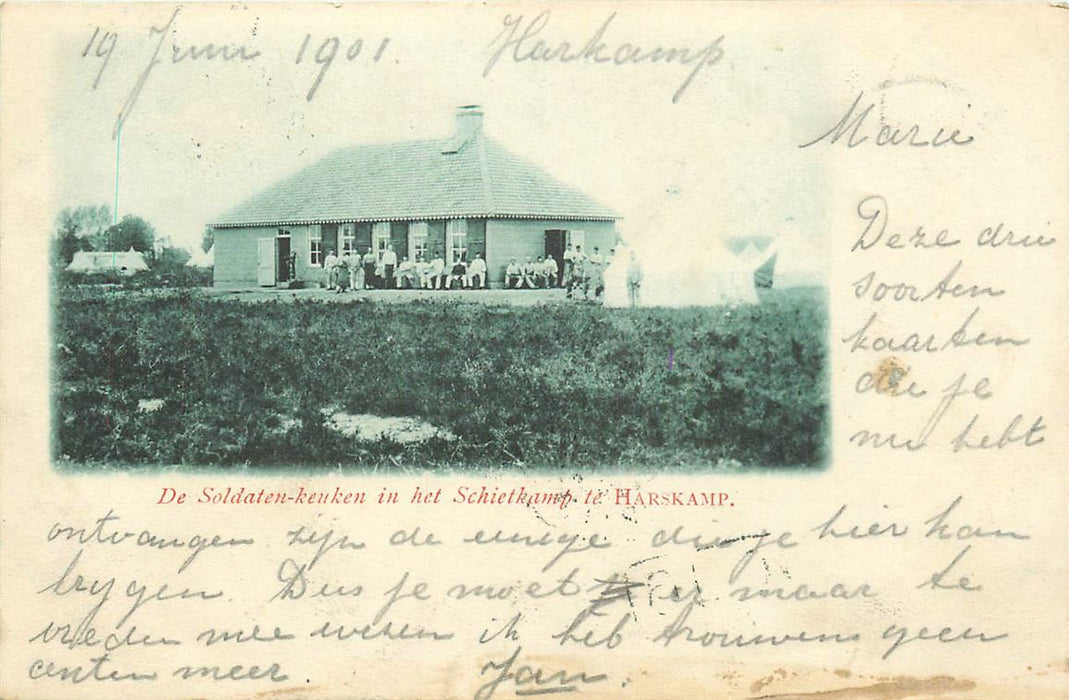 19 Juni 1901. Harskamp
Marie
Deze drie
soorten
kaarten
die je
nu hebt
De Soldaten-keuken in het Schietkamp te HARSKAMP.
ontvangen zijn de eenige die je hier kan
krygen. Dus je moet er maar te
vreden mee wezen ik heb trouwens geen
centen meer. Jan.